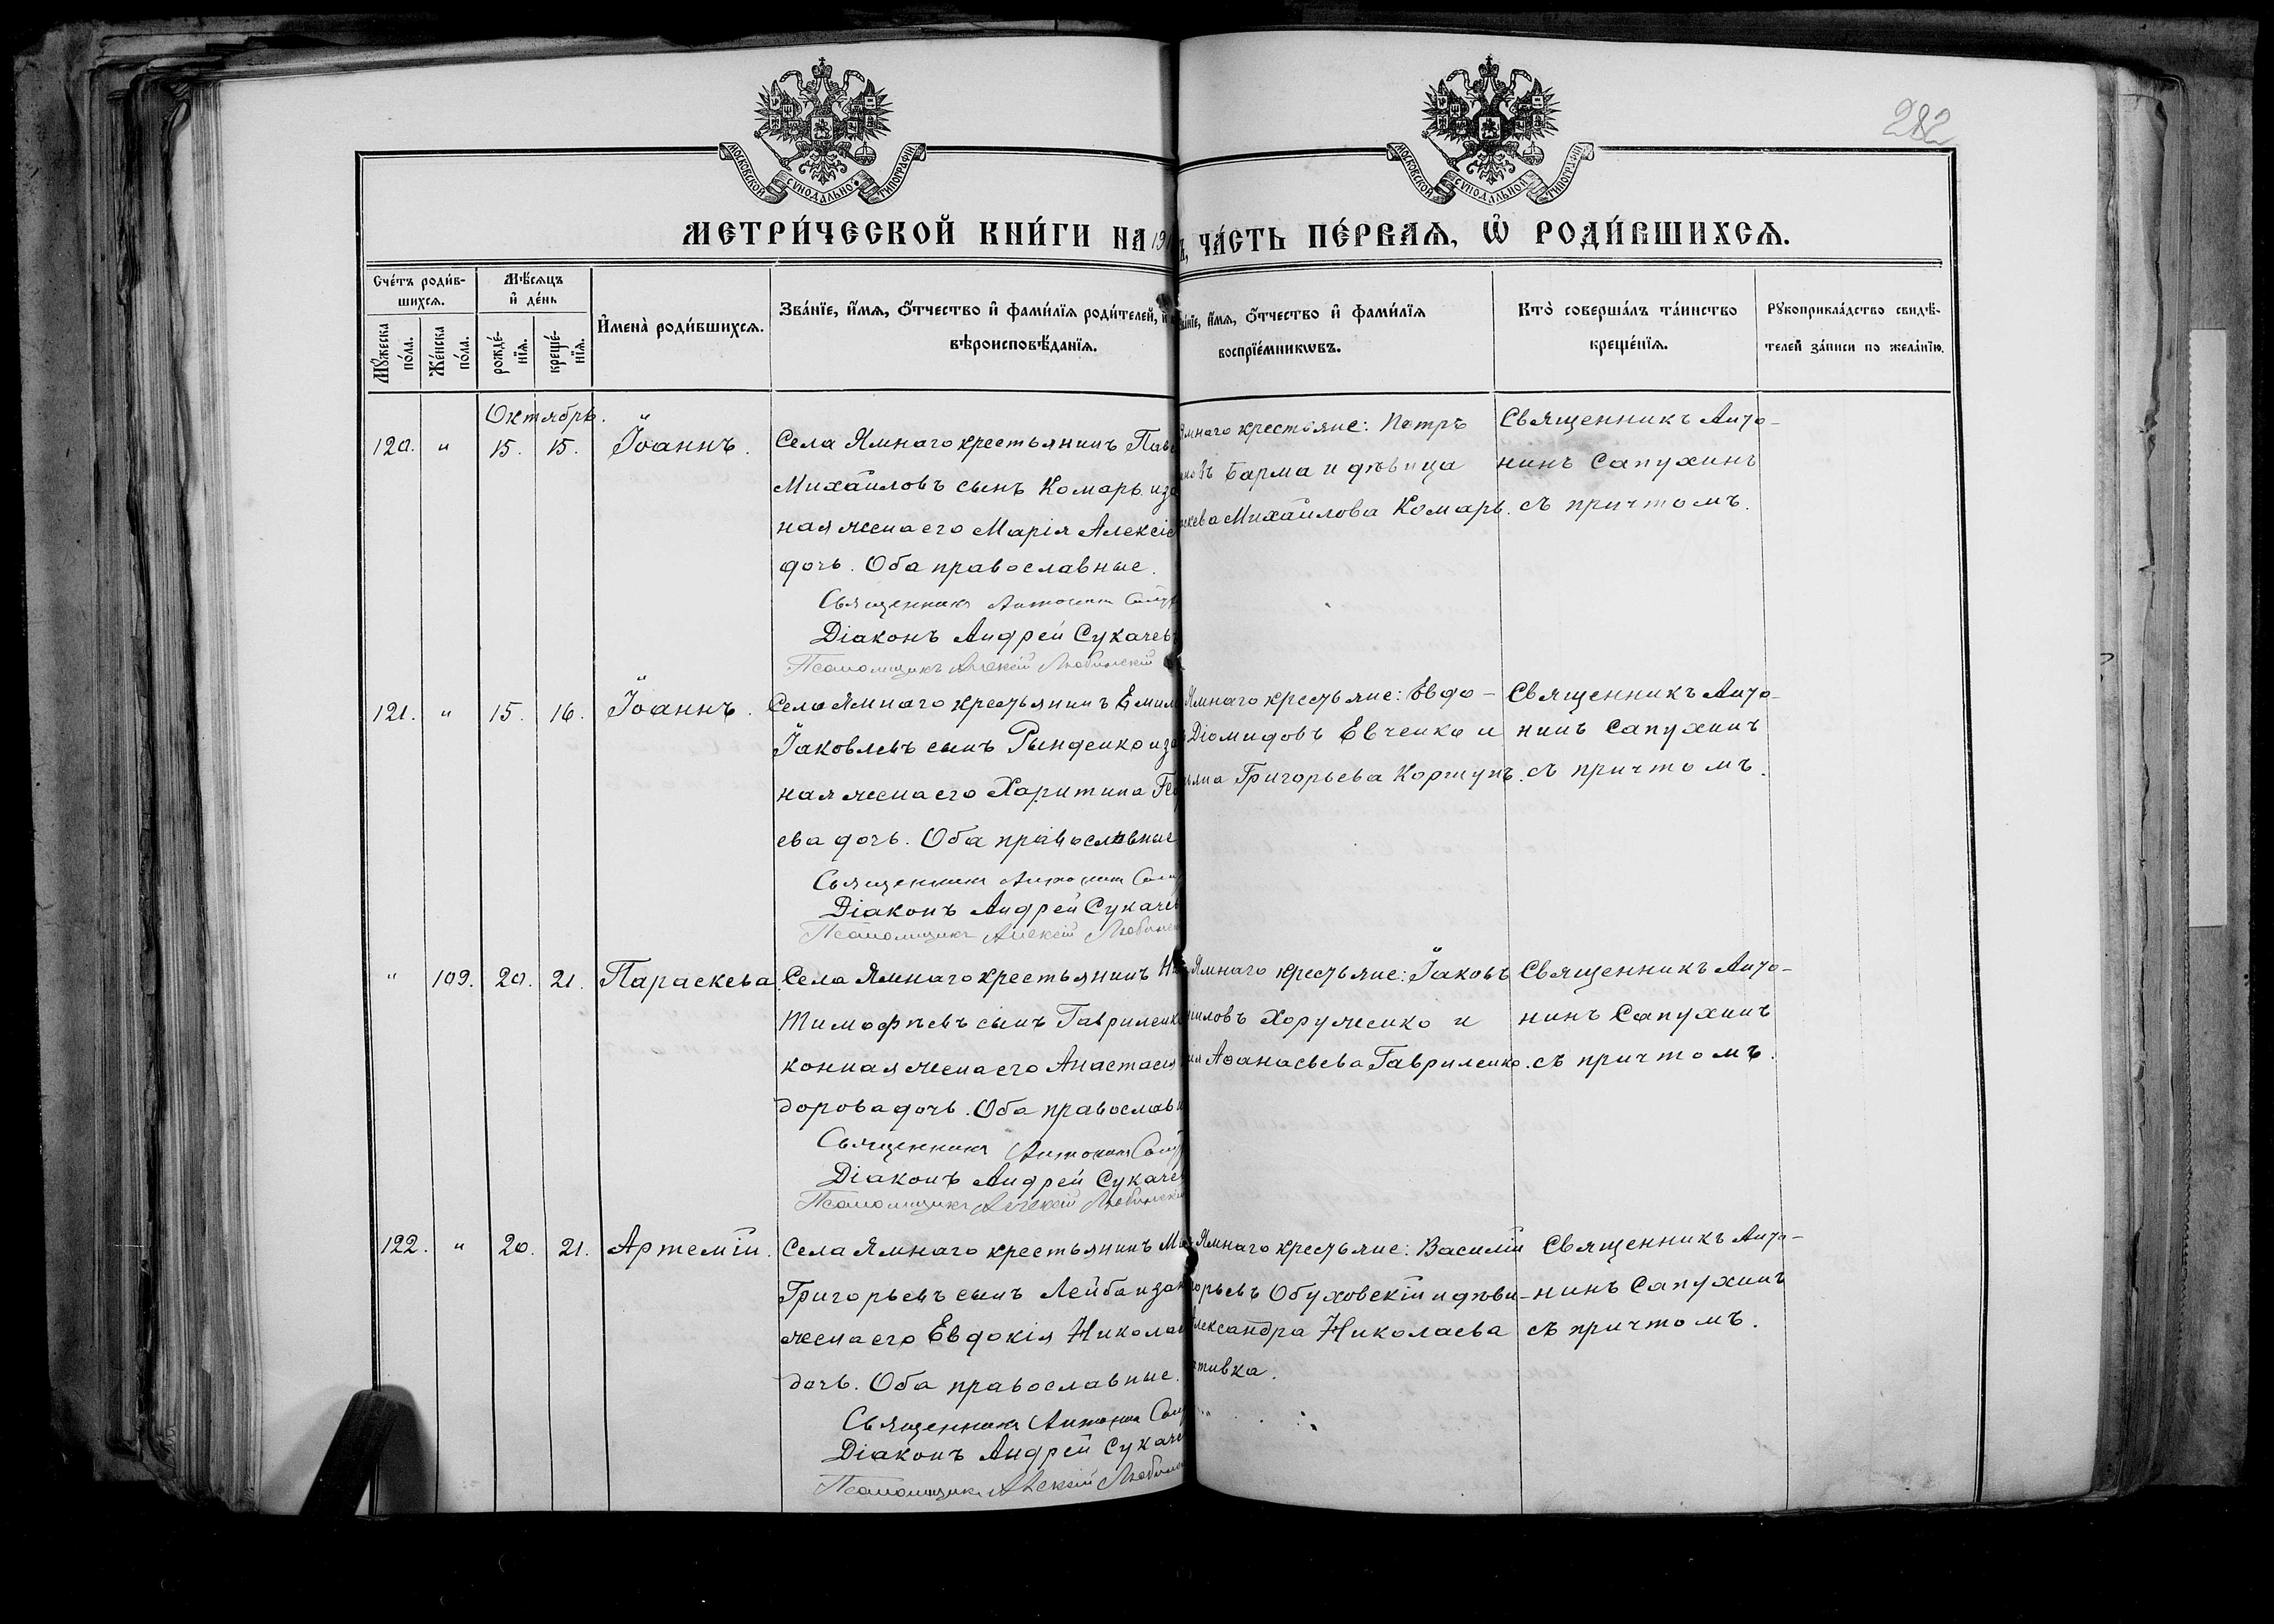 282
МОСКОВСКОЙ СѴНОДАЛЬНОЙ ТИПОГРАФІИ
МОСКОВСКОЙ СѴНОДАЛЬНОЙ ТИПОГРАФІИ
МЕТРИ́ЧЕСКОЙ КНИ́ГИ НА 19
ЧА́СТЬ ПЕ́РВАѦ, Ѡ҆ РОДИ́ВШИХСѦ.
Сче́тъ роди́в-
шихсѧ.
Мꙋ́жеска по́ла.
Же́нска по́ла.
Мѣ́сѧцъ
и҆ де́нь
рожде́-
нїѧ.
креще́-
нїѧ.
И҆мена̀ роди́вшихсѧ.
Зва́нїе, и҆́мѧ, ѻ҆́тчество и҆ фами́лїѧ роди́телей,
вѣроисповѣ́данїѧ.
и҆́мѧ, ѻ҆́тчество и҆ фами́лїѧ
воспрїе́мникѡвъ.
Кто̀ соверша́лъ та́инство
креще́нїѧ.
Рꙋкоприкла́дство свидѣ́-
телей за́писи по жела́нїю.
Октябрь.
120. " 15. 15. Іоаннъ.
Села Ямнаго крестьянинъ Пав
Михаиловъ сынъ Комарь и за
ная жена его Марія Алексіе
дочь. Оба православные.
Священникъ Антонинъ Сапу
Діаконъ Андрей Сукачев
Псаломщикъ Алексій Любинскій
Ямнаго крестьяне: Петръ
овъ Барма и дѣвица
скева Михаилова Комарь.
Священникъ Анто-
нинъ Сапухинъ
съ причтомъ.
121. " 15. 16. Іоаннъ.
Села Ямнаго крестьянинъ Емил
Іаковлевъ сынъ Рынденко и за
ная жена его Харитина Ге
ева дочь. Оба православные
Священникъ Антонинъ Сапу
Діаконъ Андрей Сукачев
Псаломщикъ Алексій Любинск
Ямнаго крестьяне: Евдо-
Діомидовъ Евченко и
Григорьева Коршунъ.
Священникъ Анто-
нинъ Сапухинъ
съ причтомъ.
" 109. 20. 21. Параскева.
Села Ямнаго крестьянинъ
Тимофѣевъ сынъ Гавриленко
конная жена его Анастасія
дорова дочь. Оба православн
Священникъ Антонинъ Сапу
Діаконъ Андрей Сукаче
Псаломщикъ Алексій Любинскій
Ямнаго крестьяне: Іаковъ
иловъ Хоруженко и
Аѳанасьева Гавриленко.
Священникъ Анто-
нинъ Сапухинъ
съ причтомъ.
122. " 20. 21. Артемій.
Села Ямнаго крестьянинъ Ми
Григорьевъ сынъ Лейба и зак
жена его Евдокія Николае
дочь. Оба православные.
Священникъ Антонинъ Сапу
Діаконъ Андрей Сукаче
Псаломщикъ Алексій Любинс
Ямнаго крестьяне: Василій
горьевъ Обуховскій и дѣви-
лександра Николаева
тивка.
Священникъ Анто-
нинъ Сапухинъ
съ причтомъ.